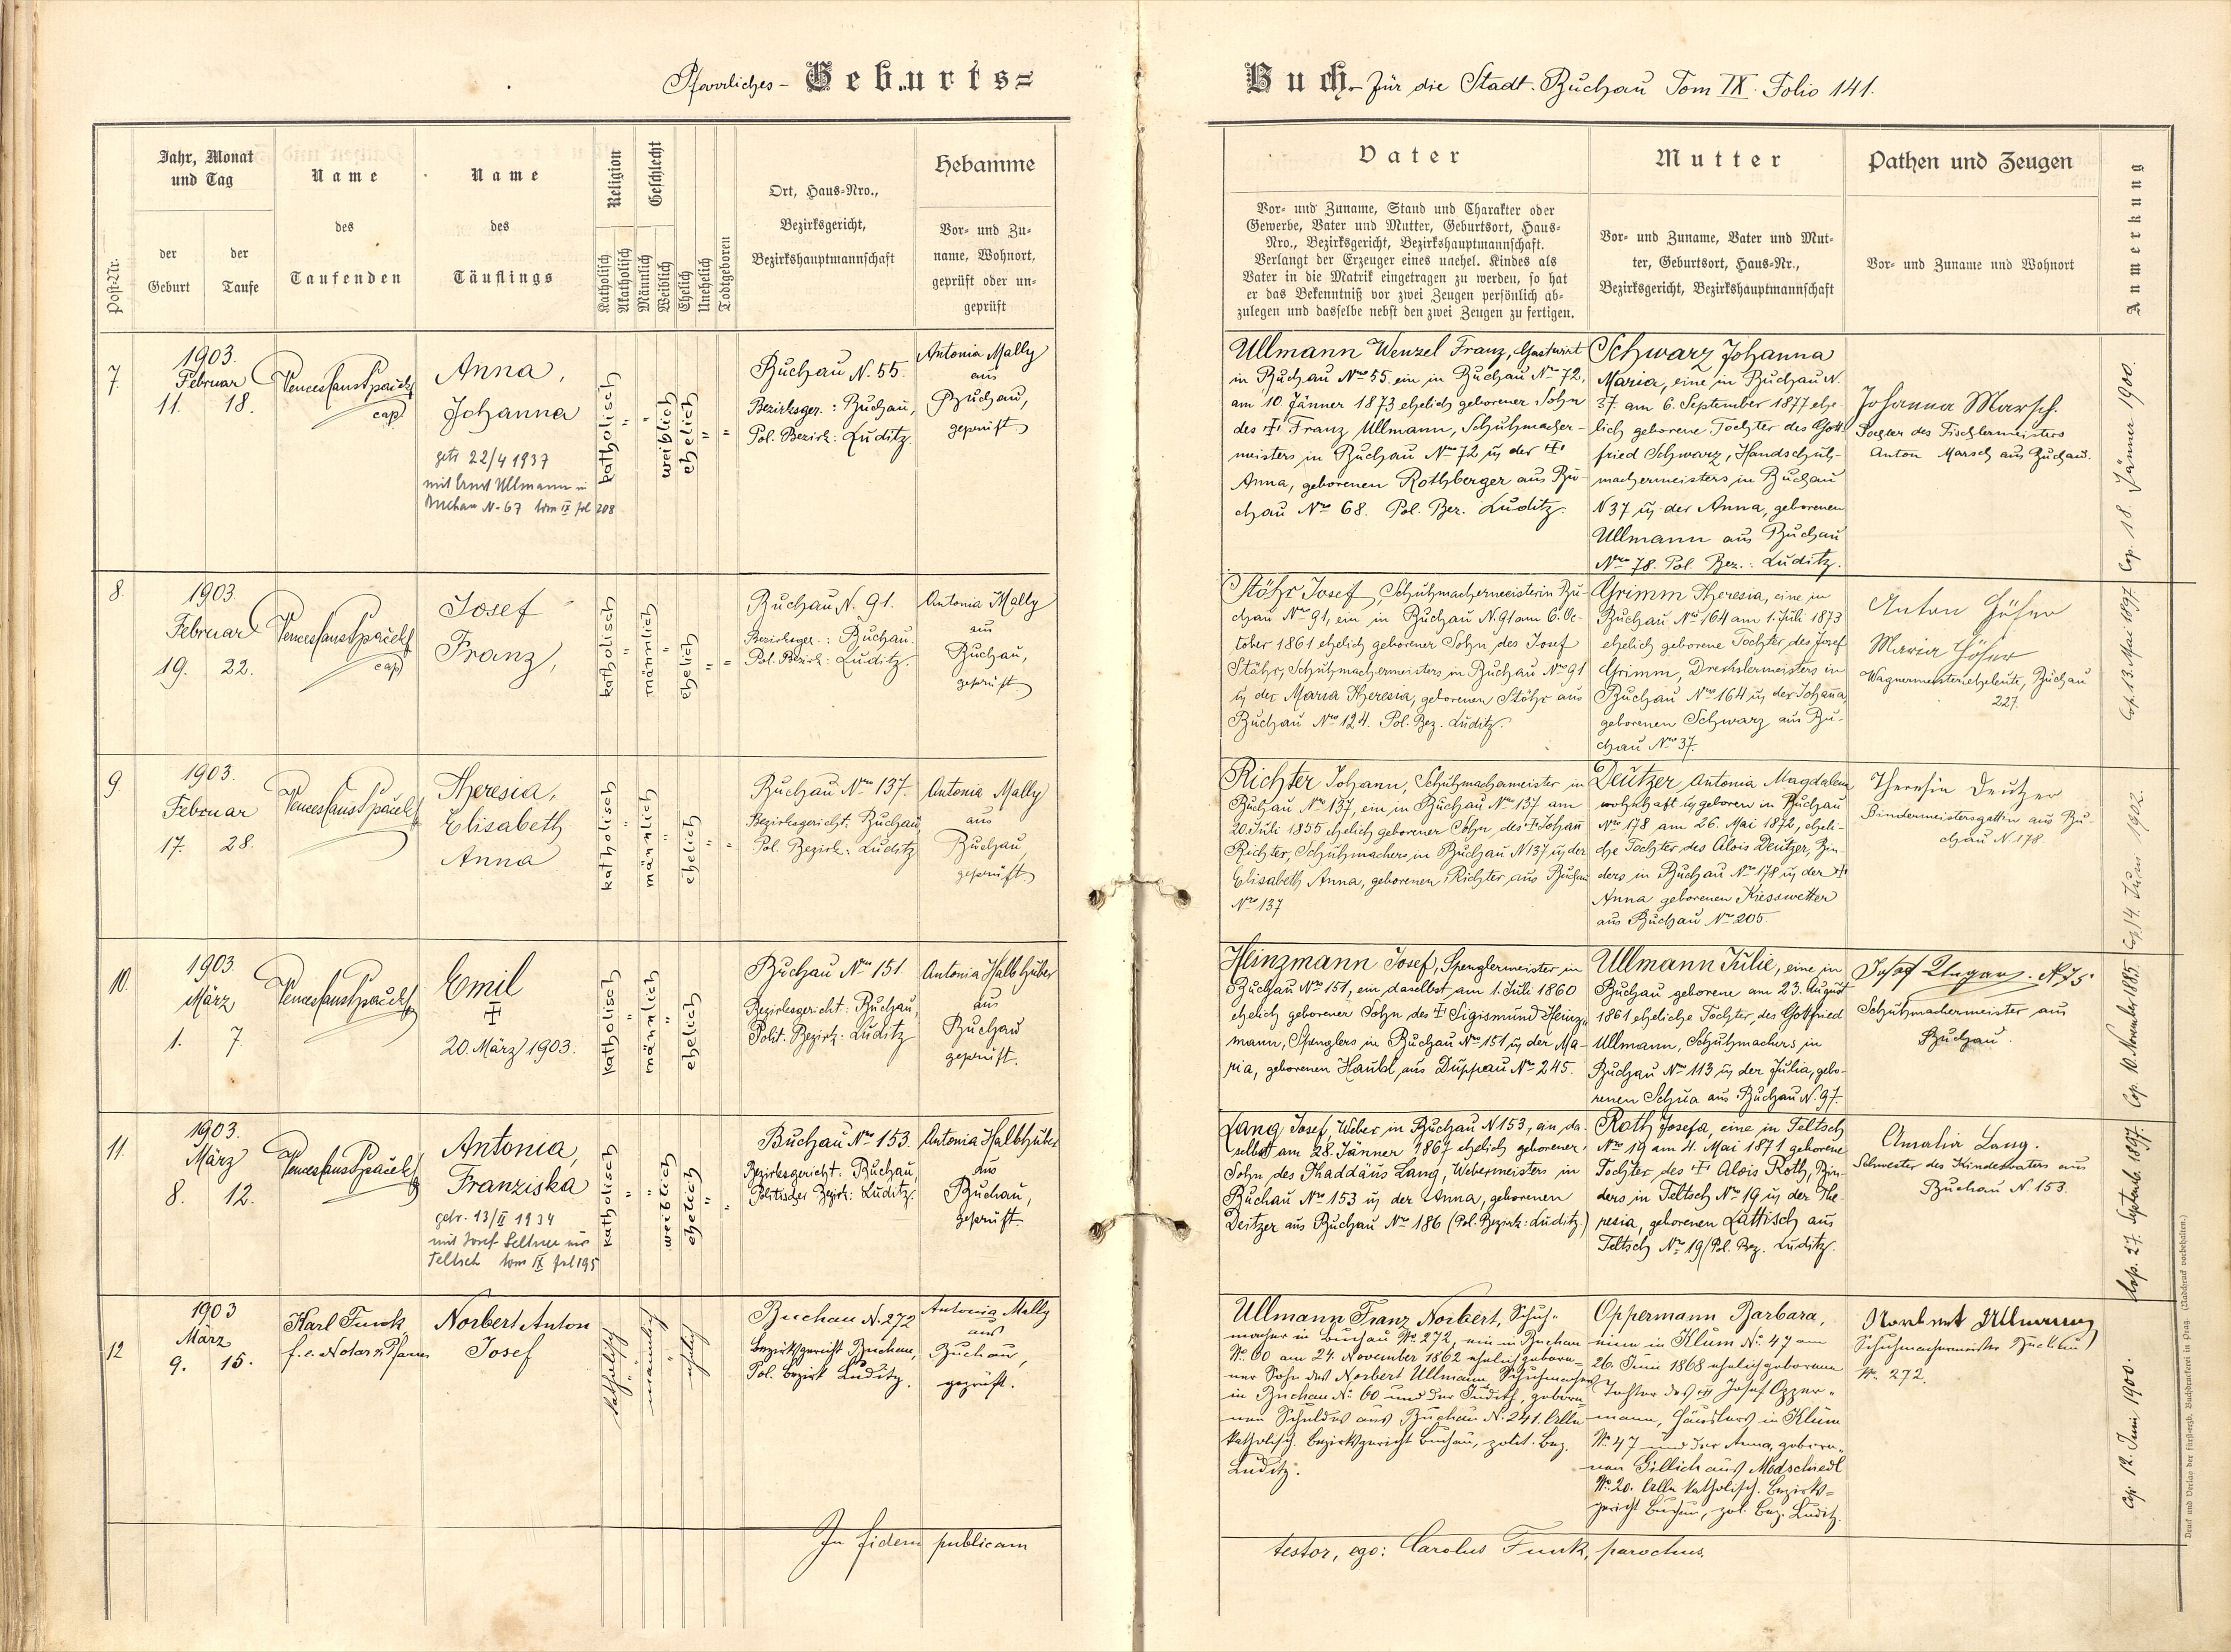 Pfarrliches - Geburts=
Buch. für die Stadt. Buchau Tom IX. Folio 141.
Post-Nr.
Jahr, Monat
und Tag
der
Geburt
der
Taufe
Name
des
Taufenden
Name
des
Täuflings
Religion
Katholisch
Akatholisch
Geschlecht
Männlich
Weiblich
Ehelich
Unehelich
Todtgeboren
Ort, Haus=Nro.,
Bezirksgericht,
Bezirkshauptmannschaft
Hebamme
Vor= und Zu=
name, Wohnort,
geprüft oder un=
geprüft
Vater
Vor= und Zuname, Stand und Charakter oder
Gewerbe, Vater und Mutter, Geburtsort, Haus=
Nro., Bezirksgericht, Bezirkshauptmannschaft.
Verlangt der Erzeuger eines unehel. Kindes als
Vater in die Matrik eingetragen zu werden, so hat
er das Bekenntniß vor zwei Zeugen persönlich ab=
zulegen und dasselbe nebst den zwei Zeugen zu fertigen.
Mutter
Vor= und Zuname, Vater und Mut=
ter, Geburtsort, Haus=Nr.,
Bezirksgericht, Bezirkshauptmannschaft
Pathen und Zeugen
Vor= und Zuname und Wohnort
Anmerkung
7.
1903.
Februar
11. 18.
Venceslaus Špaček
cap.
Anna,
Johanna
getr 22/4 1937
mit Ernst Ullmann in
Buchau N-67 tom IX fol 208
katholisch
"
"
weiblich
ehelich
"
"
Buchau N. 55.
Bezirksger.: Buchau,
Pol. Bezirk: Luditz.
Antonia Mally
aus
Buchau,
geprüft
Ullmann Wenzel Franz, Gastwirt
in Buchau Nro 55. ein in Buchau Nro 72,
am 10. Jänner 1873 ehelich geborener Sohn
des † Franz Ullmann, Schuhmacher-
meisters in Buchau Nro 72 u. der †
Anna, geborenen Rothberger aus Bu-
chau Nro 68. Pol. Bez. Luditz.
Schwarz Johanna
Maria, eine in Buchau N.
37. am 6. September 1877 ehe-
lich geborene Tochter des Gott-
fried Schwarz, Handschuh-
machermeisters in Buchau
N 37 u. der Anna, geborenen
Ullmann aus Buchau
Nro 78. Pol. Bez.: Luditz.
Johanna Marsch.
Tochter des Tischlermeisters
Anton Marsch aus Buchau.
Cop. 18. Jänner 1900.
8.
1903
Februar
19. 22.
Venceslaus Špaček
cap
Josef
Franz,
katholisch
"
männlich
"
ehelich
"
"
Buchau N. 91.
Bezirksger.: Buchau.
Pol. Bezirk: Luditz.
Antonia Mally
aus
Buchau,
geprüft
Stöhr Josef, Schuhmachermeister in Bu-
chau Nro 91, ein in Buchau N. 91 am 6. Oc-
tober 1861 ehelich geborener Sohn des Josef
Stöhr, Schuhmachermeisters in Buchau Nro 91
u. der Maria Theresia, geborenen Stöhr aus
Buchau Nro 124. Pol. Bez. Luditz.
Grimm Theresia, eine in
Buchau Nro 164 am 1. Juli 1873
ehelich geborene Tochter des Josef
Grimm, Drechslermeisters in
Buchau Nro 164 u. der Johanna,
geborenen Schwarz aus Bu-
chau Nro 37.
Anton Höher
Maria Höher
Wagnermeisterseheleute, Buchau
227.
Cop. 13. Mai 1897.
9.
1903.
Februar
17. 28.
Venceslaus Špaček
Theresia,
Elisabeth
Anna
katholisch
"
männlich
"
ehelich
"
"
Buchau Nro 137.
Bezirksgericht: Buchau,
Pol. Bezirk: Luditz
Antonia Mally
aus
Buchau,
geprüft
Richter Johann, Schuhmachermeister in
Buchau Nro 137, ein in Buchau Nro 137 am
20. Juli 1855 ehelich geborener Sohn des † Johann
Richter, Schuhmachers in Buchau N 137 u. der
Elisabeth Anna, geborenen Richter aus Buchau
Nro 137
Deutzer Antonia Magdalena
wohnhaft u. geboren in Buchau
Nro 178 am 26. Mai 1872, eheli-
che Tochter des Alois Deutzer, Bin-
ders in Buchau Nro 178 u. der †
Anna geborenen Kiesswetter
aus Buchau Nro 205.
Theresia Deutzer
Bindermeistersgattin aus Bu-
chau N. 178
Cop. 14. Juni 1902.
10.
1903.
März
1. 7.
Venceslaus Špaček
Emil
†
20. März 1903.
katholisch
"
männlich
"
ehelich
Buchau Nro 151.
Bezirksgericht: Buchau,
Polit. Bezirk: Luditz
Antonia Halbhuber
aus
Buchau
geprüft.
Heinzmann Josef, Spenglermeister in
Buchau Nro 151, ein daselbst am 1. Juli 1860
ehelich geborener Sohn des † Sigismund Heinz-
mann, Spenglers in Buchau Nro 151 u. der Ma-
ria, geborenen Haubl, aus Duppau Nro 245.
Ullmann Julie, eine in
Buchau geborene am 23. August
1861 eheliche Tochter, des Gottfried
Ullmann, Schuhmachers in
Buchau Nro 113 u. der Julia, gebo-
renen Schua aus Buchau N. 97.
Josef Ungar. N 75
Schuhmachermeister aus
Buchau.
Cop. 10. November 1885.
11.
1903.
März
8. 12.
Venceslaus Špaček
Antonia,
Franziska
getr. 13/II 1934
mit Josef Seltner aus
Teltsch tom IX fol 195
katholisch
"
"
weiblich
ehelich
"
"
Buchau Nro 153.
Bezirksgericht: Buchau,
Politischer Bezirk: Luditz.
Antonia Halbhuber
aus
Buchau,
geprüft.
Lang Josef, Weber in Buchau N 153, ein da-
selbst am 28. Jänner 1867 ehelich geborener
Sohn des Thaddäus Lang, Webermeisters in
Buchau Nro 153 u. der Anna, geborenen
Deitzer aus Buchau Nro 186 (Pol. Bezirk: Luditz.)
Roth Josefa, eine in Teltsch
Nro 19 am 4. Mai 1871 geborene
Tochter des † Alois Roth, Bin-
ders in Teltsch Nro 19 u. der The-
resia, geborenen Lattisch aus
Teltsch Nro 19 (Pol. Bez. Luditz.
Amalia Lang.
Schwester des Kindesvaters aus
Buchau N. 153.
Cop. 27. Septemb. 1897.
12
1903
März
9. 15.
Karl Funk,
f. e. Notar u. Pfarrer
Norbert Anton
Josef
katholisch
"
männlich
"
ehelich
Buchau N. 272
Bezirksgericht Buchau,
Pol. Bezirk Luditz.
Antonia Mally
aus
Buchau,
geprüft.
Ullmann Franz Norbert, Schuh-
macher in Buchau No 272, ein in Buchau
No. 60 am 24. November 1862 ehelich gebore-
ner Sohn des Norbert Ullmann Schuhmachers
in Buchau No 60 und der Judith, gebore-
nen Schuldes aus Buchau No 241. Alle
katholisch. Bezirksgericht Buchau, polit. Bez.
Luditz.
Oppermann Barbara,
eine in Klum No. 47 am
26. Juni 1868 ehelich geborene
Tochter des † Josef Opper-
mann, Häuslers in Klum
No. 47 und der Anna, gebore-
nen Gillich aus Modschiedl
No. 20. Alle katholisch. Bezirks-
gericht Buchau, pol. Bez. Luditz.
Norbert Ullmann
Schuhmachermeister Buchau
No. 272.
Cop. 12. Juni 1900.
In fidem publicam
testor, ego: Carolus Funk, parochus.
Druck und Verlag der fürsterzb. Buchdruckerei in Prag. (Nachdruck vorbehalten.)